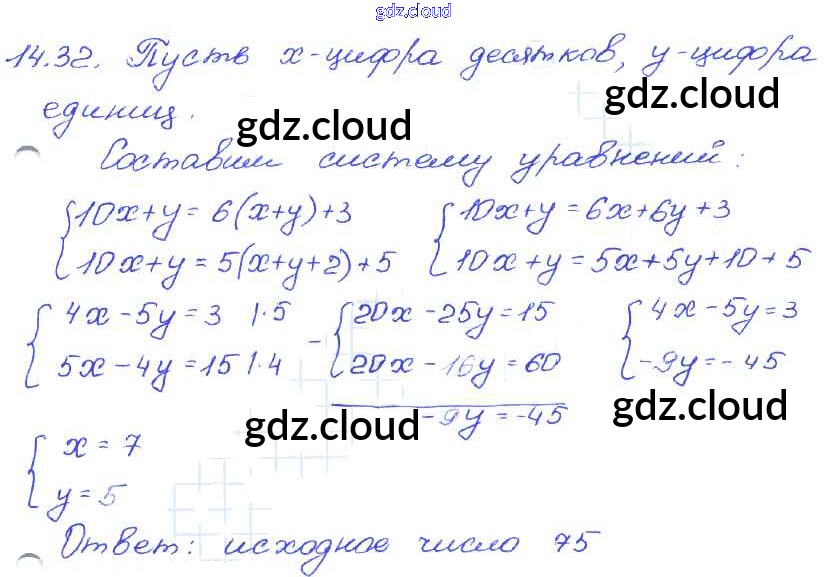 gdz.cloud
14.32. Пусть x-цифра десятков, y-цифра
gdz.cloud
единиц.
gdz.cloud
Составим систему уравнений:
{10x+y = 6(x+y)+3 {10x+y = 6x+6y+3
10x+y = 5(x+y+2)+5 10x+y = 5x+5y+10+5
{4x-5y=3 |·5 -{20x-25y=15 {4x-5y=3
5x-4y=15 |·4 20x-16y=60 -9y=-45
-9y=-45
gdz.cloud gdz.cloud
{x=7
y=5
Ответ: исходное число 75